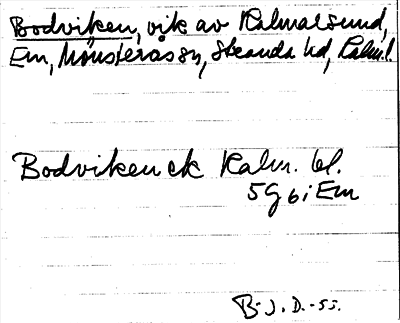 Bodviken, vik av Kalmarsund,
Em, Mönsterås sn, Stranda hd, Kalm. l.
Bodviken ek Kalm. bl.
5 g b i Em
B-J. D. -55.